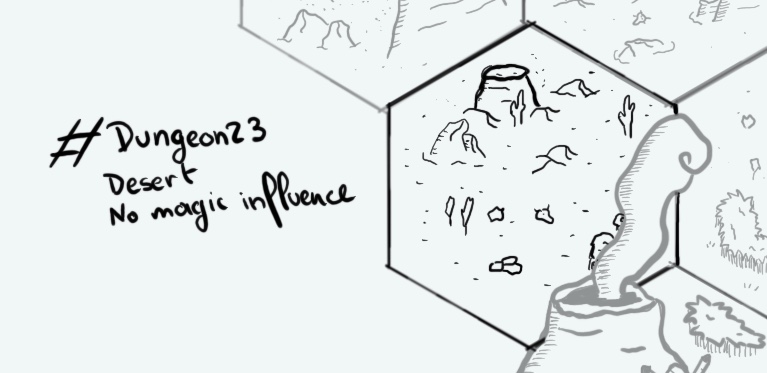 #Dungeon23
Desert
No magic influence